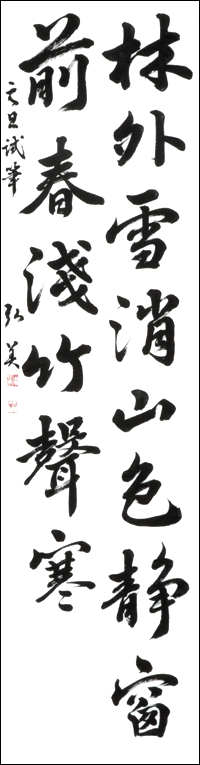 林外雪消山色静窗
前春淺竹聲寒
元旦試筆 弘美